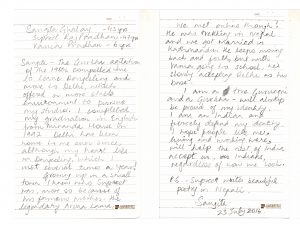 Sangita Ghalay - 43 yrs
Suproot Raj Pradhan - 47 yrs
Kamna Pradhan - 6 yrs
Sangita - The Gorkha agitation
of the 1980s compelled me
to leave Darjeeling and
move to Delhi, which
offered a more stable
environment to pursue
my studies. I completed
my graduation in English
from Miranda House in
1992. Delhi has been
home to me ever since,
although my heart lies
in Darjeeling which I
visit several times a year.
Growing up in a small
town I knew who Suproot
was, more so because of
his famous mother, the
legendary Aruna Lama.
We met online though!
He was trekking in Nepal
and we got married in
Kathmandu. He keeps moving
back and forth but with
Kamna going to school, he's
slowly accepting Delhi as his
'home'.
I am a true Gurungni
and a Gorkha - will always
be proud of my identity.
I am an Indian and
fiercely defend my identity.
I hope people like me,
living and working here,
will help the rest of India
accept us, as Indians,
regardless of how we look.
PS - Suproot writes beautiful
poetry in Nepali.
Sangita
23 July 2014